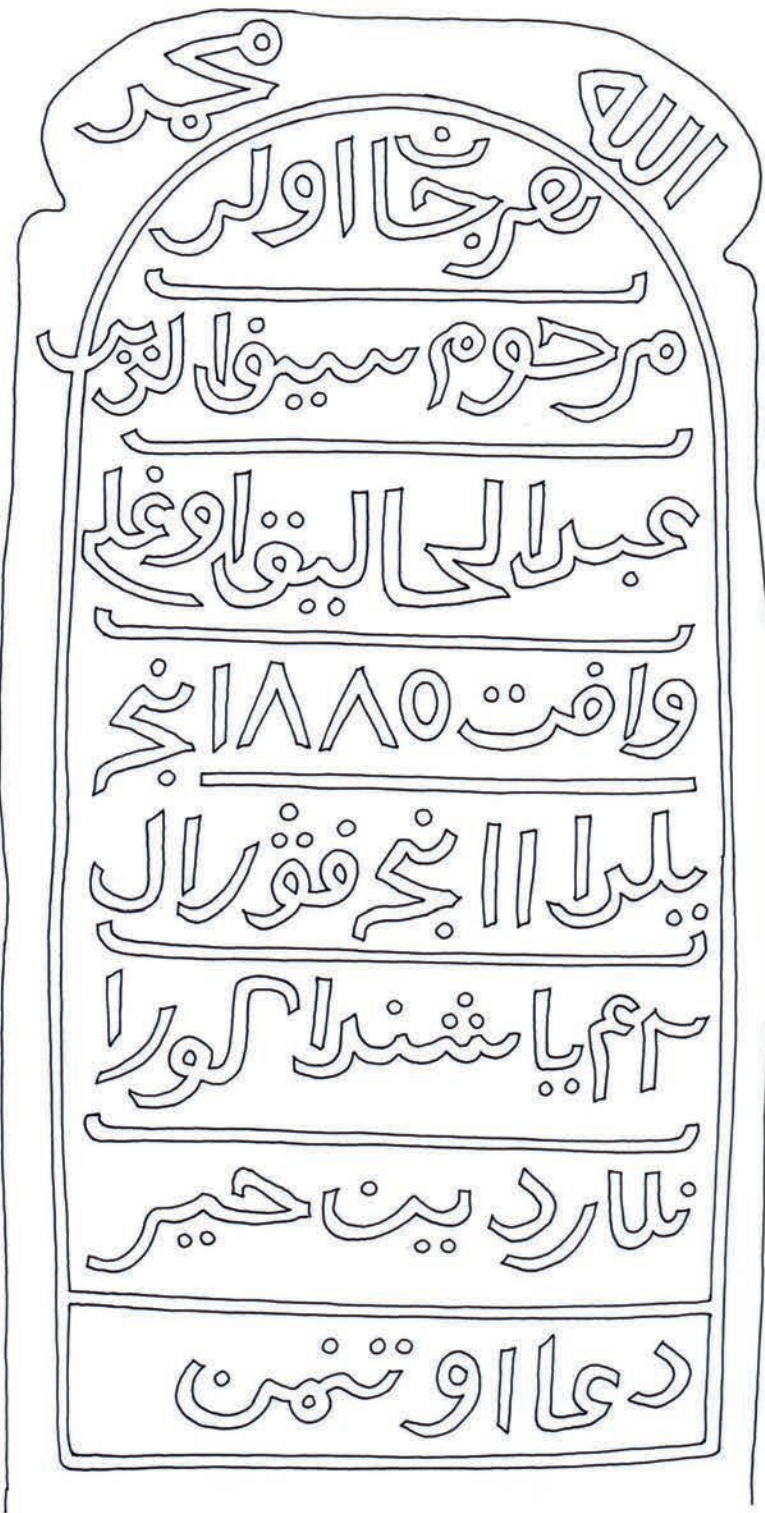 الله محمد
هرجان اولر
مرحوم
عبدالحاليق اوغلى
وافت ١٨٨٥ نجى
يلدا ١١ نجى فۋرال
۴٢ ياشندا كورا
نلاردين حير
دعا اوتنمن